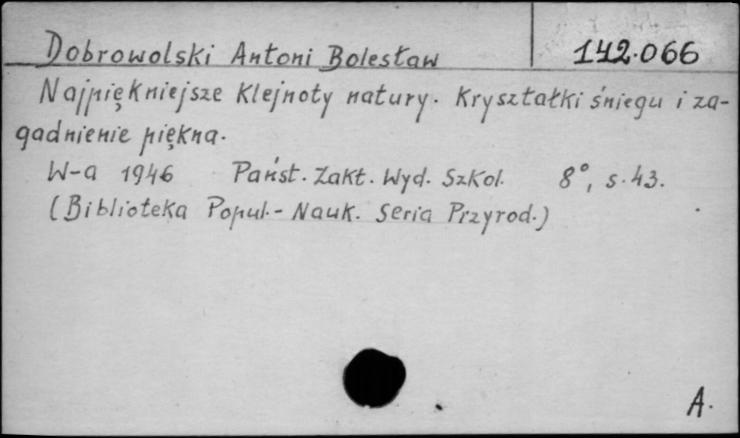 Dobrowolski Antoni Bolesław 142.066
Najpiękniejsze klejnoty natury. Kryształki śniegu i za-
gadnienie piękna.
W-a 1946 Państ. Zakł. Wyd. Szkol. 8°, s. 43.
(Biblioteka Popul.- Nauk. Seria Przyrod.)
A.